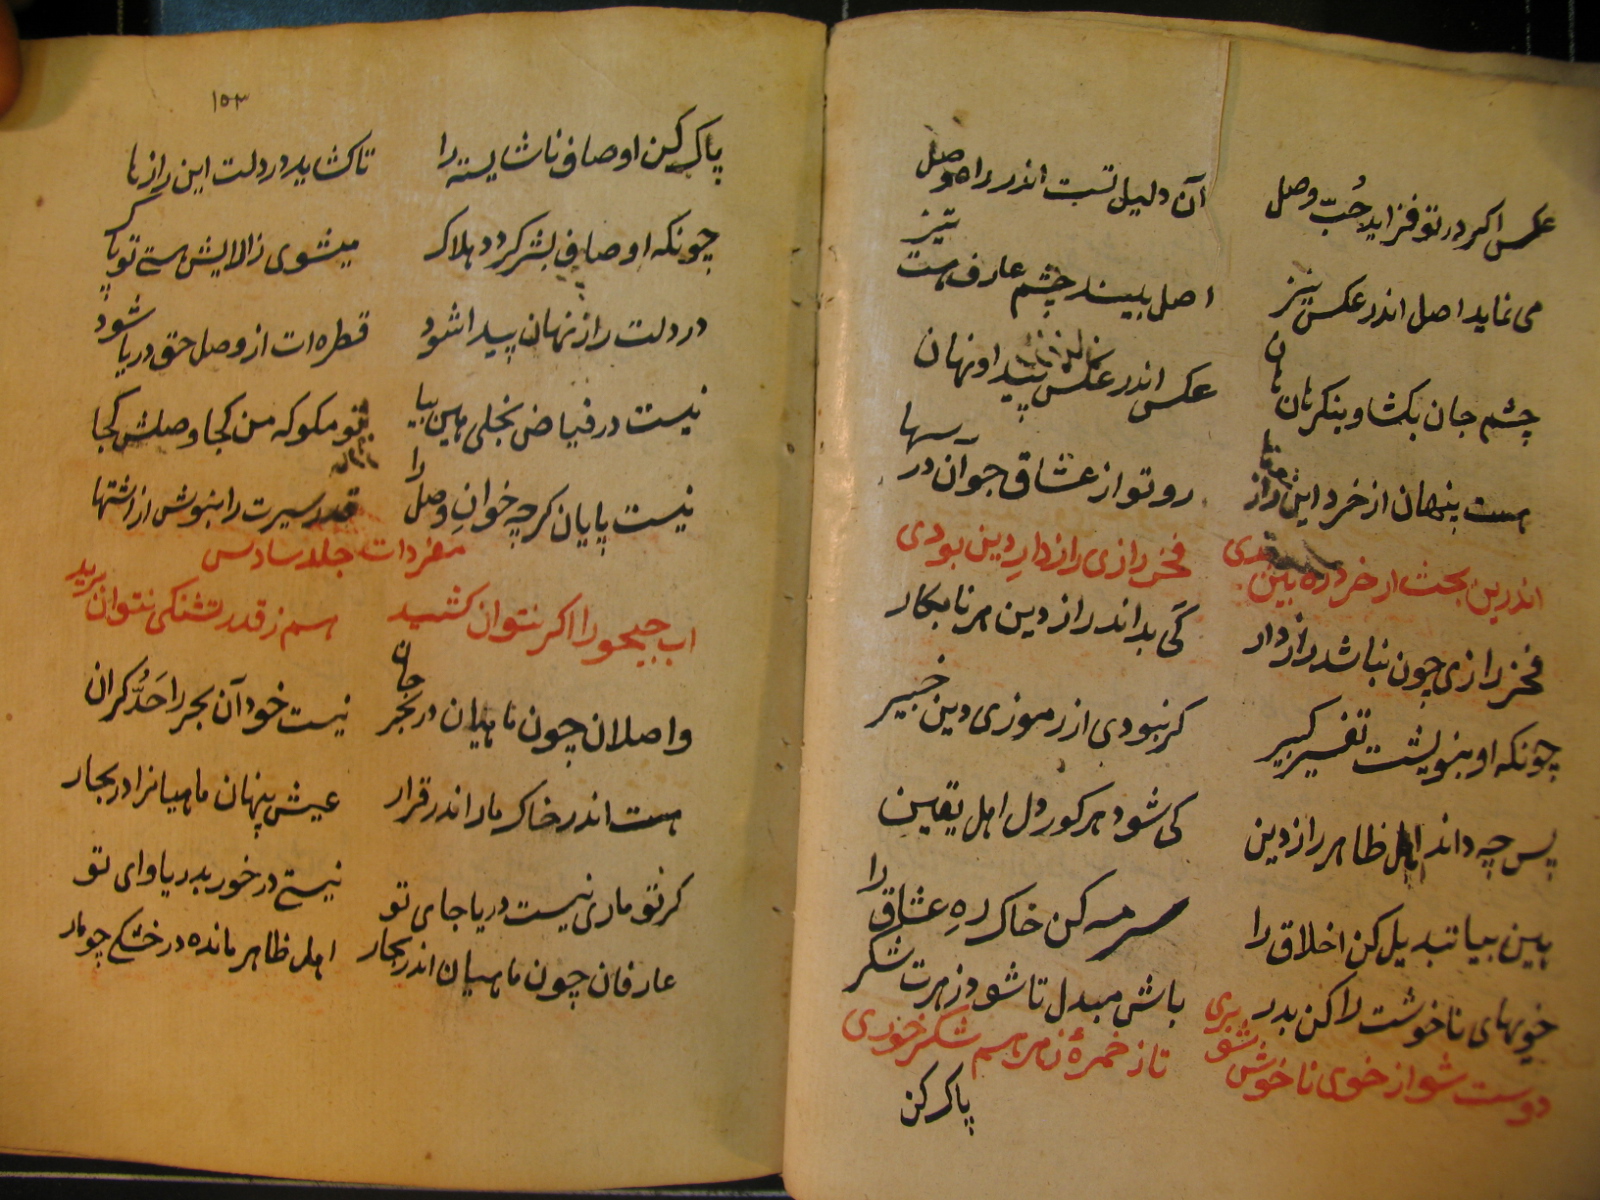 عکس اکر در تو فزاید حُبّ وصل
آن دلیل تست اندر راه وصل
می نماید اصل اندر عکس نیز
اصل بیند چشم عارف هست تیز
چشم جان بکشا و بنکر هان هان
عکس اندر عکس پیدا و نهان
هست پنهان از خرد این راز
رو تو از عشاق جو آن در سها
اندرین بحث ار خرد ره بین بدی
فخر رازی رازدارِ دین بودی
فخر رازی چون نباشد رازدار
کَی بداند راز دین هر نابکار
چونکه او بنویشت تفسیر کبیر
کر نبودی از رموزی دین خبیر
پس چه داند اهل ظاهر راز دین
کی شود هر کور دل اهل یقین
هین بیا تبدیل کن اخلاق را
سرمه کن خاک رهِ عشاق را
خویهای ناخوشت را کن بدر
باش مبدل تا شود زهرت شکر
دوست شو از خوی ناخوش شو بری
تا ز خمرهٔ زهر هم شکر خوری
پاک کن
١٥٣
پاک کن اوصاف ناشایسته را
تا کشاید در دلت این رازها
چونکه اوصاف بشر کردد هلاک
میشوی زالایش هستی تو پاک
در دلت راز نهان پیدا شود
قطره ات از وصل حق دریا شود
نیست در فیاض بخلی هین بیا
تو مکو که من کجا وصلش کجا
نیست پایان کرچه خوانِ وصل را
قدر سیرت را بنوش از اشتها
مفردات جلد سادس
اب جیحو را اکر نتوان کشید
هم ز قدر تشنکی نتوان برید
واصلان چون ماهیان در بحر جان
نیست خود آن بحر را حَدُّ کران
هست اندر خاک مار اندر قرار
عیش پنهان ماهیانرا در بحار
کر تو ماری نیست دریا جای تو
نیستی در خور بدریا وای تو
عارفان چون ماهیان اندر بحار
اهل ظاهر مانده در خشکی چو مار